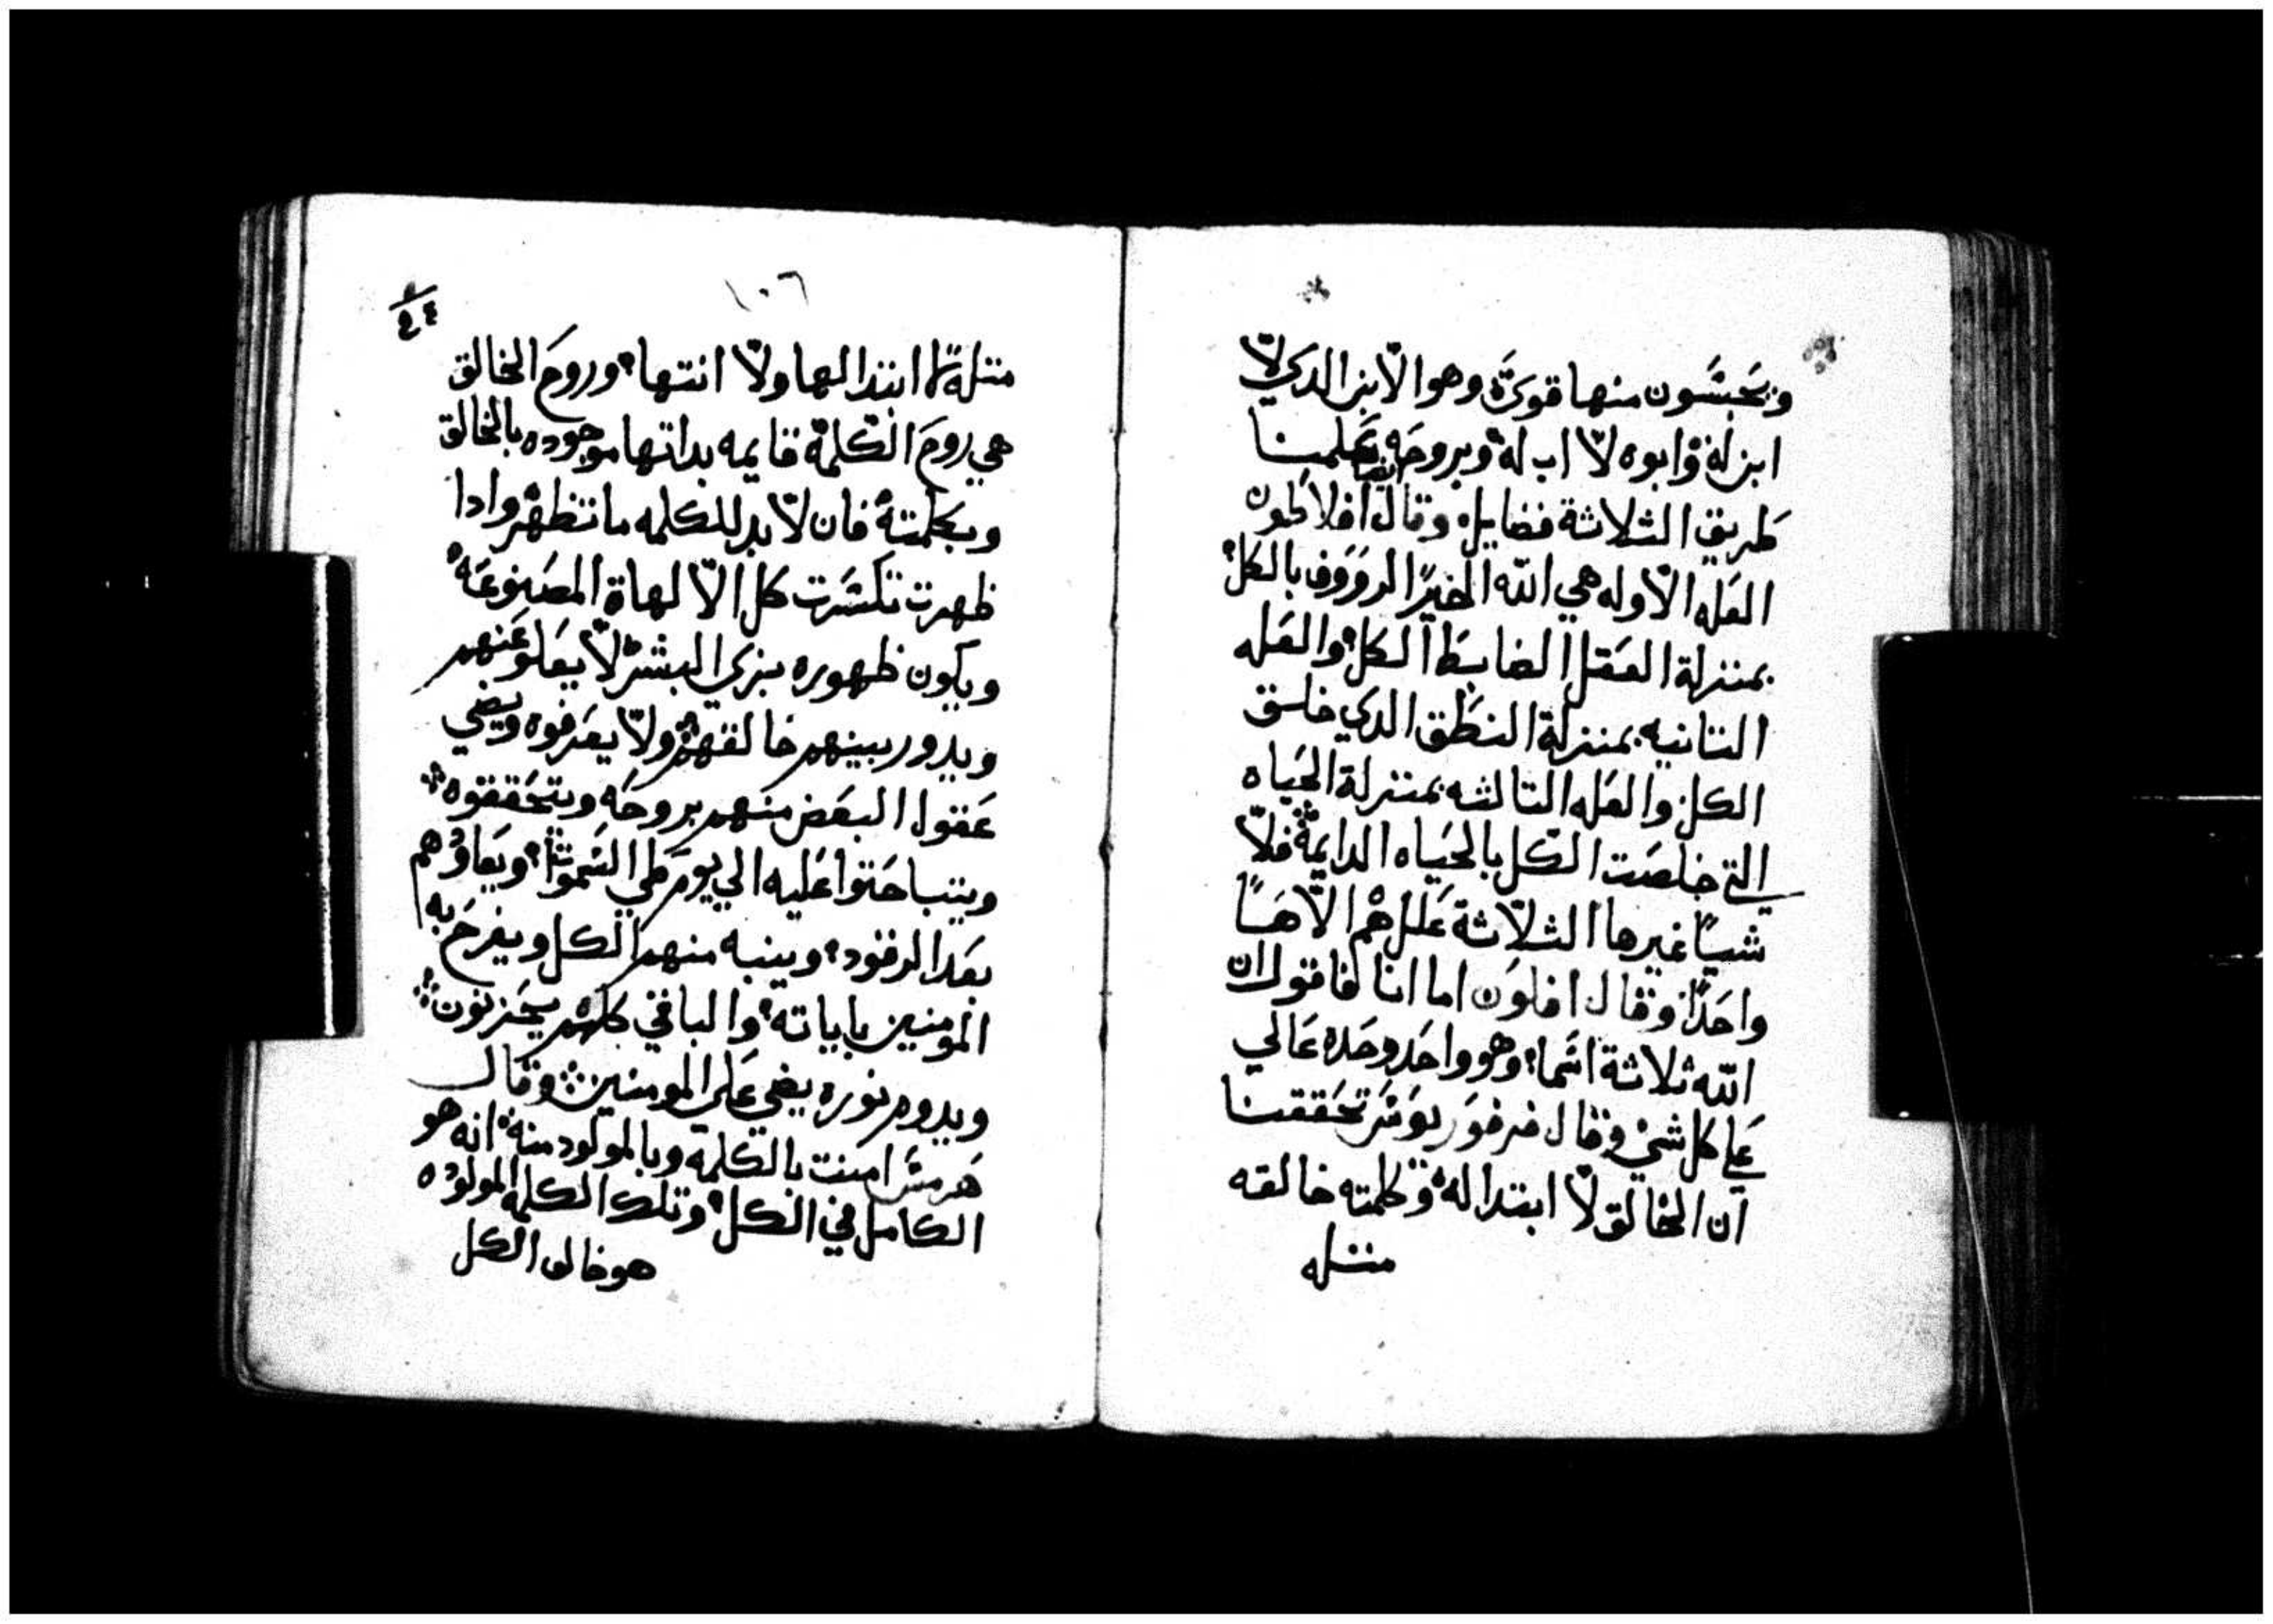 ويحبسون منها قوي وهو الابن الدي لا
ابن له وابوه لا اب له وبروحه تعلمنا
طريق الثلاثة فضايل وقال ايضا افلاطون
العله الاوله هي الله الخير الرووف بالكل
بمنزلة العقل الضابط الكل والعله
التانيه بمنزلة النطق الدي خلق
الكل والعله التالثه بمنزلة الحياه
التي خلصت الكل بالحياه الدايمة فلا
شيا غيرها الثلاثة علل هم الاها
واحدا وقال افلون اما انا فاقول ان
الله ثلاثة اسما وهو واحد وحده عالي
علي كل شي وقال فرفوريوس تحققنا
ان الخالق لا ابتدا له وكلمته خالقه
متله
١٠٦
متله لا ابتدا لها ولا انتها وروح الخالق
هي روح الكلمة قايمه بداتها موجوده بالخالق
وبكلمته فان لا بد للكلمه ما تظهر وادا
ظهرت تكسرت كل الالهاة المصنوعه
ويكون ظهوره بزي البشر لا يعلو عنهم
ويدور بينهم خالقهم ولا يعرفوه ويضي
عقول البعض منهم بروحه ويتحققوه
ويتباحتوا عليه الي يوم طي السموات ويعاودهم
بعد الرقود وينبه منهم الكل ويفرح به
المومنين باياته والباقي كلهم يحزنون
ويدوم نوره يضي علي المومنين وقال
هرمس امنت بالكلمه وبالمولود منه انه هو
الكامل في الكل وتلك الكلمه المولوده
هو خالق الكل